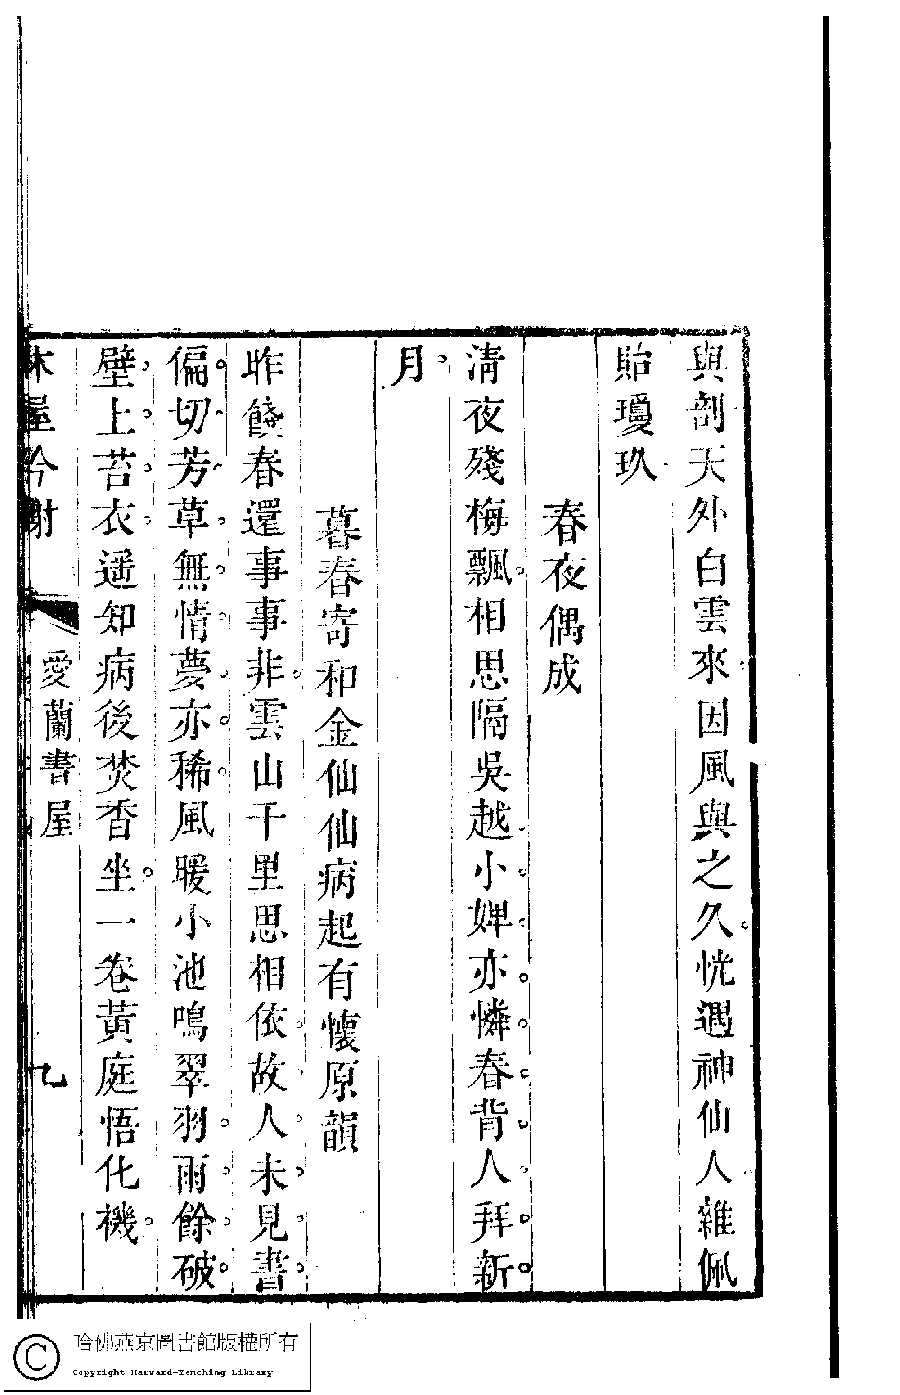 與剖天外白雲來因風與之久恍遇神仙人雜佩
貽瓊玖
春夜偶成
淸夜殘梅飄相思隔吳越小婢亦憐春背人拜新
月
暮春寄和金仙仙病起有懷原韻
昨餞春還事事非雲山千里思相依故人未見書
偏切芳草無情夢亦稀風暖小池鳴翠羽雨餘破
壁上苔衣遥知病後焚香坐一卷黃庭悟化機
林屋吟榭
愛蘭書屋
九
哈佛燕京圖書館版權所有
Copyright Harvard-Yenching Library